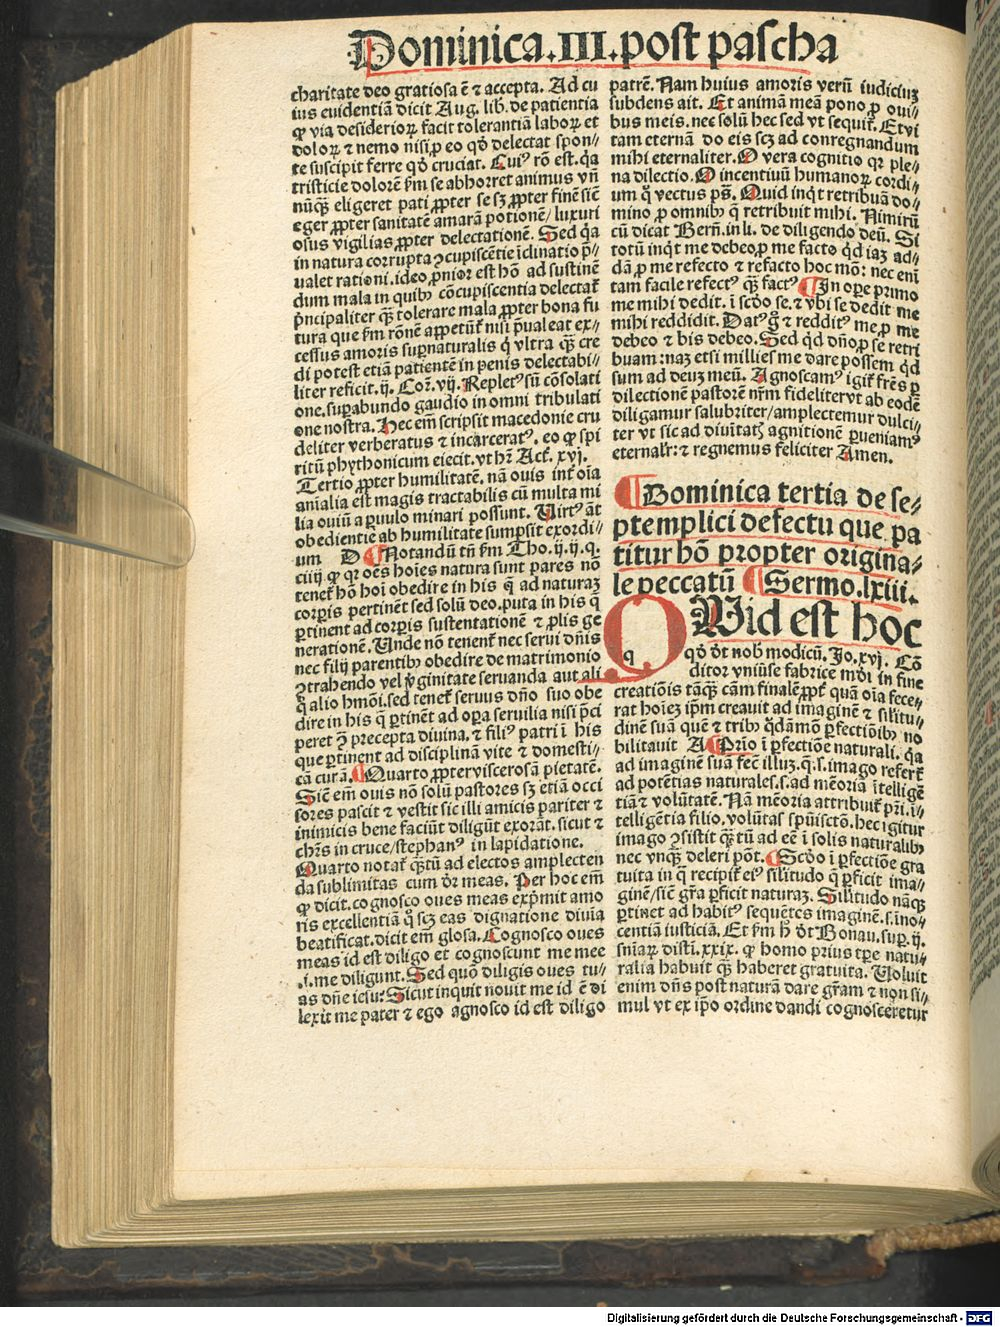 Dominica.III.post pascha
charitate deo gratiosa ē ⁊ accepta. Ad cu
ius euidentiā dicit Aug. lib. de patientia
ꝙ vis desiderioꝝ facit tolerantiā laboꝝ et
doloꝝ ⁊ nemo nisi ꝓ eo qď delectat spon⸗
te suscipit ferre qď cruciat. Cuiꝰ rō est. q̄a
tristicie dolorē ẜm se abhorret animus vn̄
nūq̄ꝫ eligeret pati ꝓpter se sꝫ ꝓpter finē sic̄
eger ꝓpter sanitatē amarā potionē / luxuri
osus vigilias ꝓpter delectationē. Sed q̄a
in natura corrupta ꝯcupiscētie īclinatio p̄⸗
ualet rationi. ideo ꝓnior est hō ad sustinē
dum mala in quibꝫ cōcupiscentia delectat̄
pͥncipaliter q̄ꝫ tolerare mala ꝓpter bona fu
tura que ẜm rōnē appetūt̄ nisi p̄ualeat ex⸗
cessus amoris suꝑnaturalis qͥ vltra q̄ꝫ cre
di potest etiā patientē in penis delectabi⸗
liter reficit. ij. Coꝝ. vij. Repletꝰ sū cōsolati
one. suꝑabundo gaudio in omni tribulati
one nostra. Hec em̄ scripsit macedonie cru
deliter verberatus ⁊ incarceratꝰ. eo ꝙ spi
ritū phythonicum eiecit. vt hr̄ Act̄. xvj.
Tertio ꝓpter humilitatē. nā ouis int̄ oīa
aīalia est magis tractabilis cū multa mi
lia ouiū a paruulo minari possunt. Uirtꝰ āt
obedientie ab humilitate sumpsit exordi⸗
um D Notandū tn̄ ẜm Tho. ij. ij. q.
ciiij ꝙ qꝛ oēs hoīes natura sunt pares nō
tenet̄ hō hoī obedire in his q̄ ad naturaꝫ
corꝑis pertinēt sed solū deo. puta in his q̄
ꝑtinent ad corꝑis sustentationē ⁊ ꝓlis ge
nerationē. Unde nō tenent̄ nec serui dn̄is
nec filij parentibꝫ obedire de matrimonio
ꝯtrahendo vel v̓ginitate seruanda aut ali
qͥ alio hmōi. sed tenet̄ seruus dn̄o suo obe
dire in his q̄ ꝑtinēt ad oꝑa seruilia nisi p̄ci
peret ꝯ̄ precepta diuina. ⁊ filiꝰ patri ī his
que ꝑtinent ad disciplinā vite ⁊ domesti⸗
cā curā. Quarto ꝓpter viscerosā pietatē.
Sic̄ em̄ ouis nō solū pastores sꝫ etiā occi
sores pascit ⁊ vestit sic illi amicis pariter ⁊
inimicis bene faciūt diligūt exorāt. sicut ⁊
chr̄s in cruce / stephanꝰ in lapidatione.
Quarto notat̄ q̄ꝫtū ad electos amplecten
da sublimitas cum dr̄ meas. Per hoc em̄
ꝙ dicit. cognosco oues meas expͥmit amo
ris excellentiā qͣ sꝫ eas dignatione diuīa
beatificat. dicit em̄ glosa. Cognosco oues
meas id est diligo et cognoscunt me mee
.i. me diligunt. Sed quō diligis oues tu⸗
as dn̄e iesu: Sicut inquit nouit me id ē di
lexit me pater ⁊ ego agnosco id est diligo
patrē. Nam huius amoris verū iudiciuꝫ
subdens ait. Et animā meā pono ꝓ oui⸗
bus meis. nec solū hec sed vt sequit̄. Et vi
tam eternā do eis scꝫ ad conregnandum
mihi eternaliter. O vera cognitio qꝛ ple⸗
na dilectio. O incentiuū humanoꝝ cordi⸗
um qͦ vectus ps̄. Quid inqͥt retribuā do⸗
mino ꝓ omnibꝫ q̄ retribuit mihi. Nimirū
cū dicat Bern̄. in li. de diligendo deū. Si
totū inqͥt me debeo ꝓ me facto qͥd iaꝫ ad⸗
dā ꝓ me refecto ⁊ refacto hoc mō: nec enī
tam facile refectꝰ q̄ꝫ factꝰ In oꝑe primo
me mihi dedit. ī scd̓o se. ⁊ vbi se dedit me
mihi reddidit. Datꝰ gͦ ⁊ redditꝰ me ꝓ me
debeo ⁊ bis debeo. Sed qͥd dn̄o ꝓ se retri
buam: naꝫ etsi millies me dare possem qͥd
sum ad deuꝫ meū. Agnoscamꝰ igit̄ fr̄es ꝑ
dilectionē pastorē nr̄m fideliter vt ab eodē
diligamur salubriter / amplectemur dulci⸗
ter vt sic ad diuītatꝭ agnitionē ꝑueniamꝰ
eternalr̄: ⁊ regnemus feliciter Amen.
Dominica tertia de se⸗
ptemplici defectu que pa
titur hō propter origina⸗
le peccatū Sermo.lxiii.
QUid est hoc
q
qď dr̄ nob̄ modicū. Jo. xvj. Cō
ditor vniūse fabrice mōi in fine
creatiōis tāq̄ꝫ cām finalē ꝓpt̄ quā oīa fece⸗
rat hoīeꝫ ip̄m creauit ad imaginē ⁊ sil̓itu⸗
dinē suā que ⁊ tribꝫ qͥdāmō ꝑfectiōibꝫ no
bilitauit A Prīo ī ꝑfectiōe naturali. q̄a
ad imaginē suā fec̄ illuꝫ. q. s. imago refert̄
ad potētias naturales. s. ad mēoriā ītelligē
tiā ⁊ volūtatē. Nā mēoria attribuit̄ pr̄i. ī⸗
telligētia filio. volūtas spūiscto. hec igitur
imago ꝯsistit q̄ꝫtū ad eē ī solis naturalibꝫ
nec vnq̄ꝫ deleri pōt. Scd̓o ī ꝑfectiōe gra
tuita in q̄ recipit̄ eiꝰ sil̓itudo q̄ ꝑficit ima⸗
ginē / sic̄ gr̄a ꝑficit naturaꝫ. Sil̓itudo nāq̄ꝫ
ꝑtinet ad habitꝰ sequētes imaginē. s. īno⸗
centiā iusticiā. Et ẜm hͦ dr̄t Bonau. suꝑ. ij.
sn̄iaꝝ disti. xxix. ꝙ homo prius tꝑe natu⸗
ralia habuit q̄ꝫ haberet gratuita. Uoluit
enim dn̄s post naturā dare gr̄am ⁊ non si⸗
mul vt ex ip̄o ordine dandi cognosceretur
Digitalisierung gefördert durch die Deutsche Forschungsgemeinschaft - DFG